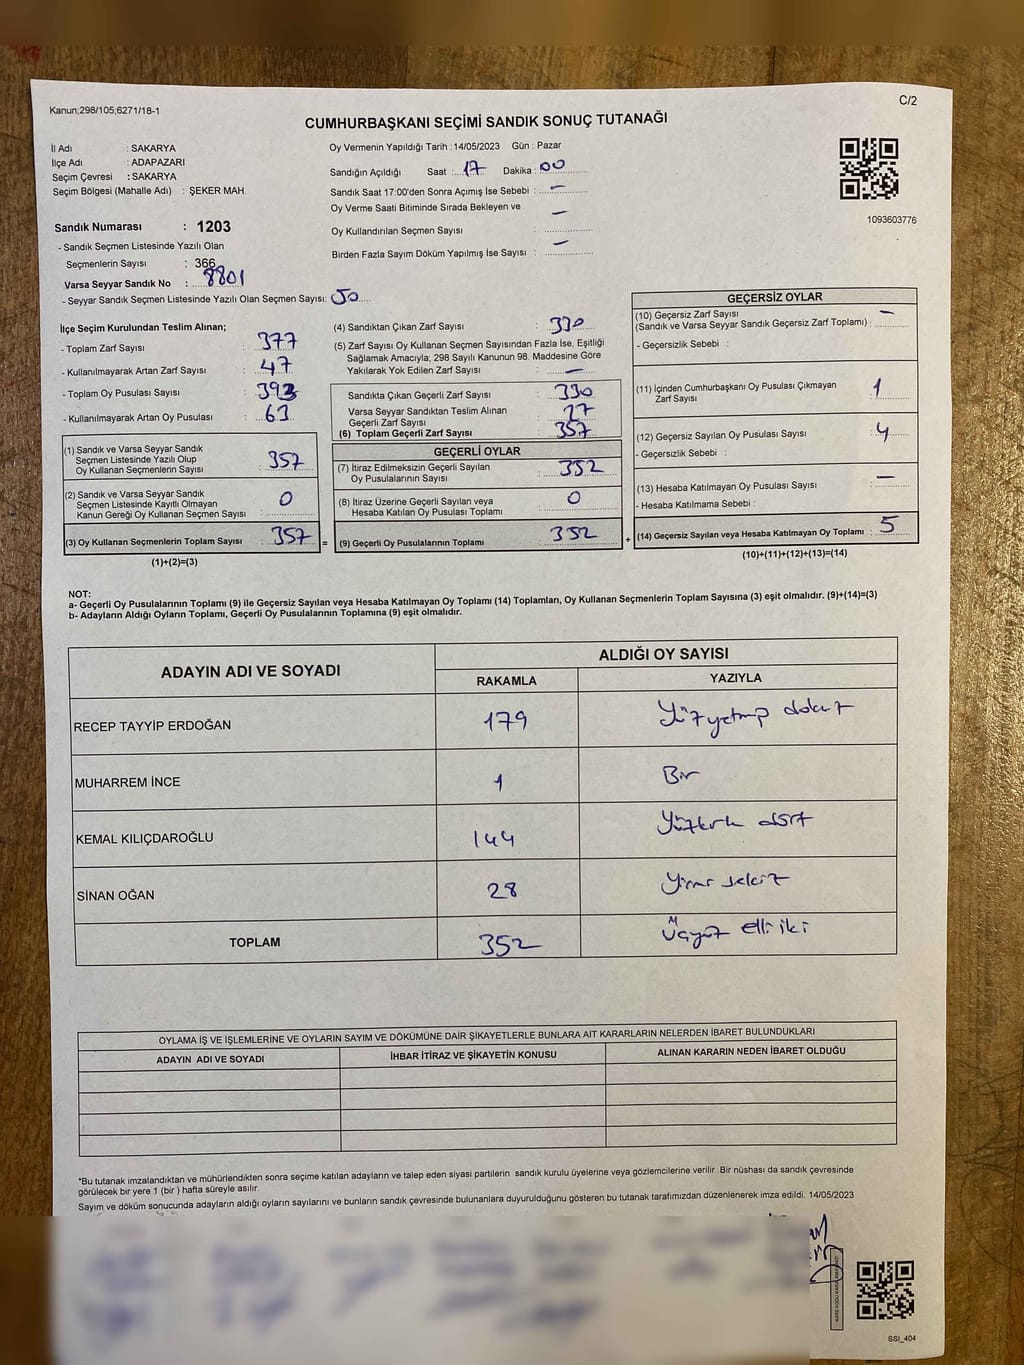 Kanun;298/105;6271/18-1
C/2
CUMHURBAŞKANI SEÇİMİ SANDIK SONUÇ TUTANAĞI
İl Adı : SAKARYA
İlçe Adı : ADAPAZARI
Seçim Çevresi : SAKARYA
Seçim Bölgesi (Mahalle Adı) : ŞEKER MAH.
Oy Vermenin Yapıldığı Tarih :14/05/2023 Gün : Pazar
Sandığın Açıldığı Saat :17 Dakika :00
Sandık Saat 17:00'den Sonra Açımış İse Sebebi : –
Oy Verme Saati Bitiminde Sırada Bekleyen ve
Oy Kullandırılan Seçmen Sayısı : –
Birden Fazla Sayım Döküm Yapılmış İse Sayısı : –
1093603776
Sandık Numarası : 1203
- Sandık Seçmen Listesinde Yazılı Olan
Seçmenlerin Sayısı : 366
Varsa Seyyar Sandık No : 8801
- Seyyar Sandık Seçmen Listesinde Yazılı Olan Seçmen Sayısı:
İlçe Seçim Kurulundan Teslim Alınan;
- Toplam Zarf Sayısı : 377
- Kullanılmayarak Artan Zarf Sayısı : 47
- Toplam Oy Pusulası Sayısı : 393
- Kullanılmayarak Artan Oy Pusulası : 63
(1) Sandık ve Varsa Seyyar Sandık
Seçmen Listesinde Yazılı Olup
Oy Kullanan Seçmenlerin Sayısı : 357
(2) Sandık ve Varsa Seyyar Sandık
Seçmen Listesinde Kayıtlı Olmayan
Kanun Gereği Oy Kullanan Seçmen Sayısı : 0
(3) Oy Kullanan Seçmenlerin Toplam Sayısı : 357 =
(1)+(2)=(3)
(4) Sandıktan Çıkan Zarf Sayısı : 330
(5) Zarf Sayısı Oy Kullanan Seçmen Sayısından Fazla İse, Eşitliği
Sağlamak Amacıyla; 298 Sayılı Kanunun 98. Maddesine Göre
Yakılarak Yok Edilen Zarf Sayısı : –
Sandıkta Çıkan Geçerli Zarf Sayısı : 330
Varsa Seyyar Sandıktan Teslim Alınan
Geçerli Zarf Sayısı : 27
(6) Toplam Geçerli Zarf Sayısı : 357
GEÇERLİ OYLAR
(7) İtiraz Edilmeksizin Geçerli Sayılan
Oy Pusulalarının Sayısı : 352
(8) İtiraz Üzerine Geçerli Sayılan veya
Hesaba Katılan Oy Pusulası Toplamı : 0
(9) Geçerli Oy Pusulalarının Toplamı : 352 +
GEÇERSİZ OYLAR
(10) Geçersiz Zarf Sayısı
(Sandık ve Varsa Seyyar Sandık Geçersiz Zarf Toplamı) : –
- Geçersizlik Sebebi :
(11) İçinden Cumhurbaşkanı Oy Pusulası Çıkmayan
Zarf Sayısı : 1
(12) Geçersiz Sayılan Oy Pusulası Sayısı : 4
- Geçersizlik Sebebi :
(13) Hesaba Katılmayan Oy Pusulası Sayısı : –
- Hesaba Katılmama Sebebi :
(14) Geçersiz Sayılan veya Hesaba Katılmayan Oy Toplamı : 5
(10)+(11)+(12)+(13)=(14)
NOT:
a- Geçerli Oy Pusulalarının Toplamı (9) ile Geçersiz Sayılan veya Hesaba Katılmayan Oy Toplamı (14) Toplamları, Oy Kullanan Seçmenlerin Toplam Sayısına (3) eşit olmalıdır. (9)+(14)=(3)
b- Adayların Aldığı Oyların Toplamı, Geçerli Oy Pusulalarının Toplamına (9) eşit olmalıdır.
ADAYIN ADI VE SOYADI
ALDIĞI OY SAYISI
RAKAMLA YAZIYLA
RECEP TAYYİP ERDOĞAN 179 Yüzyetmiş dokuz
MUHARREM İNCE 1 Bir
KEMAL KILIÇDAROĞLU 144 Yüzkırk dört
SİNAN OĞAN 28 Yirmi sekiz
TOPLAM 352 Üçyüz elli iki
OYLAMA İŞ VE İŞLEMLERİNE VE OYLARIN SAYIM VE DÖKÜMÜNE DAİR ŞİKAYETLERLE BUNLARA AİT KARARLARIN NELERDEN İBARET BULUNDUKLARI
ADAYIN ADI VE SOYADI İHBAR İTİRAZ VE ŞİKAYETİN KONUSU ALINAN KARARIN NEDEN İBARET OLDUĞU
*Bu tutanak imzalandıktan ve mühürlendikten sonra seçime katılan adayların ve talep eden siyasi partilerin sandık kurulu üyelerine veya gözlemcilerine verilir. Bir nüshası da sandık çevresinde
görülecek bir yere 1 (bir ) hafta süreyle asılır.
Sayım ve döküm sonucunda adayların aldığı oyların sayılarını ve bunların sandık çevresinde bulunanlara duyurulduğunu gösteren bu tutanak tarafımızdan düzenlenerek imza edildi. 14/05/2023
SSI_404